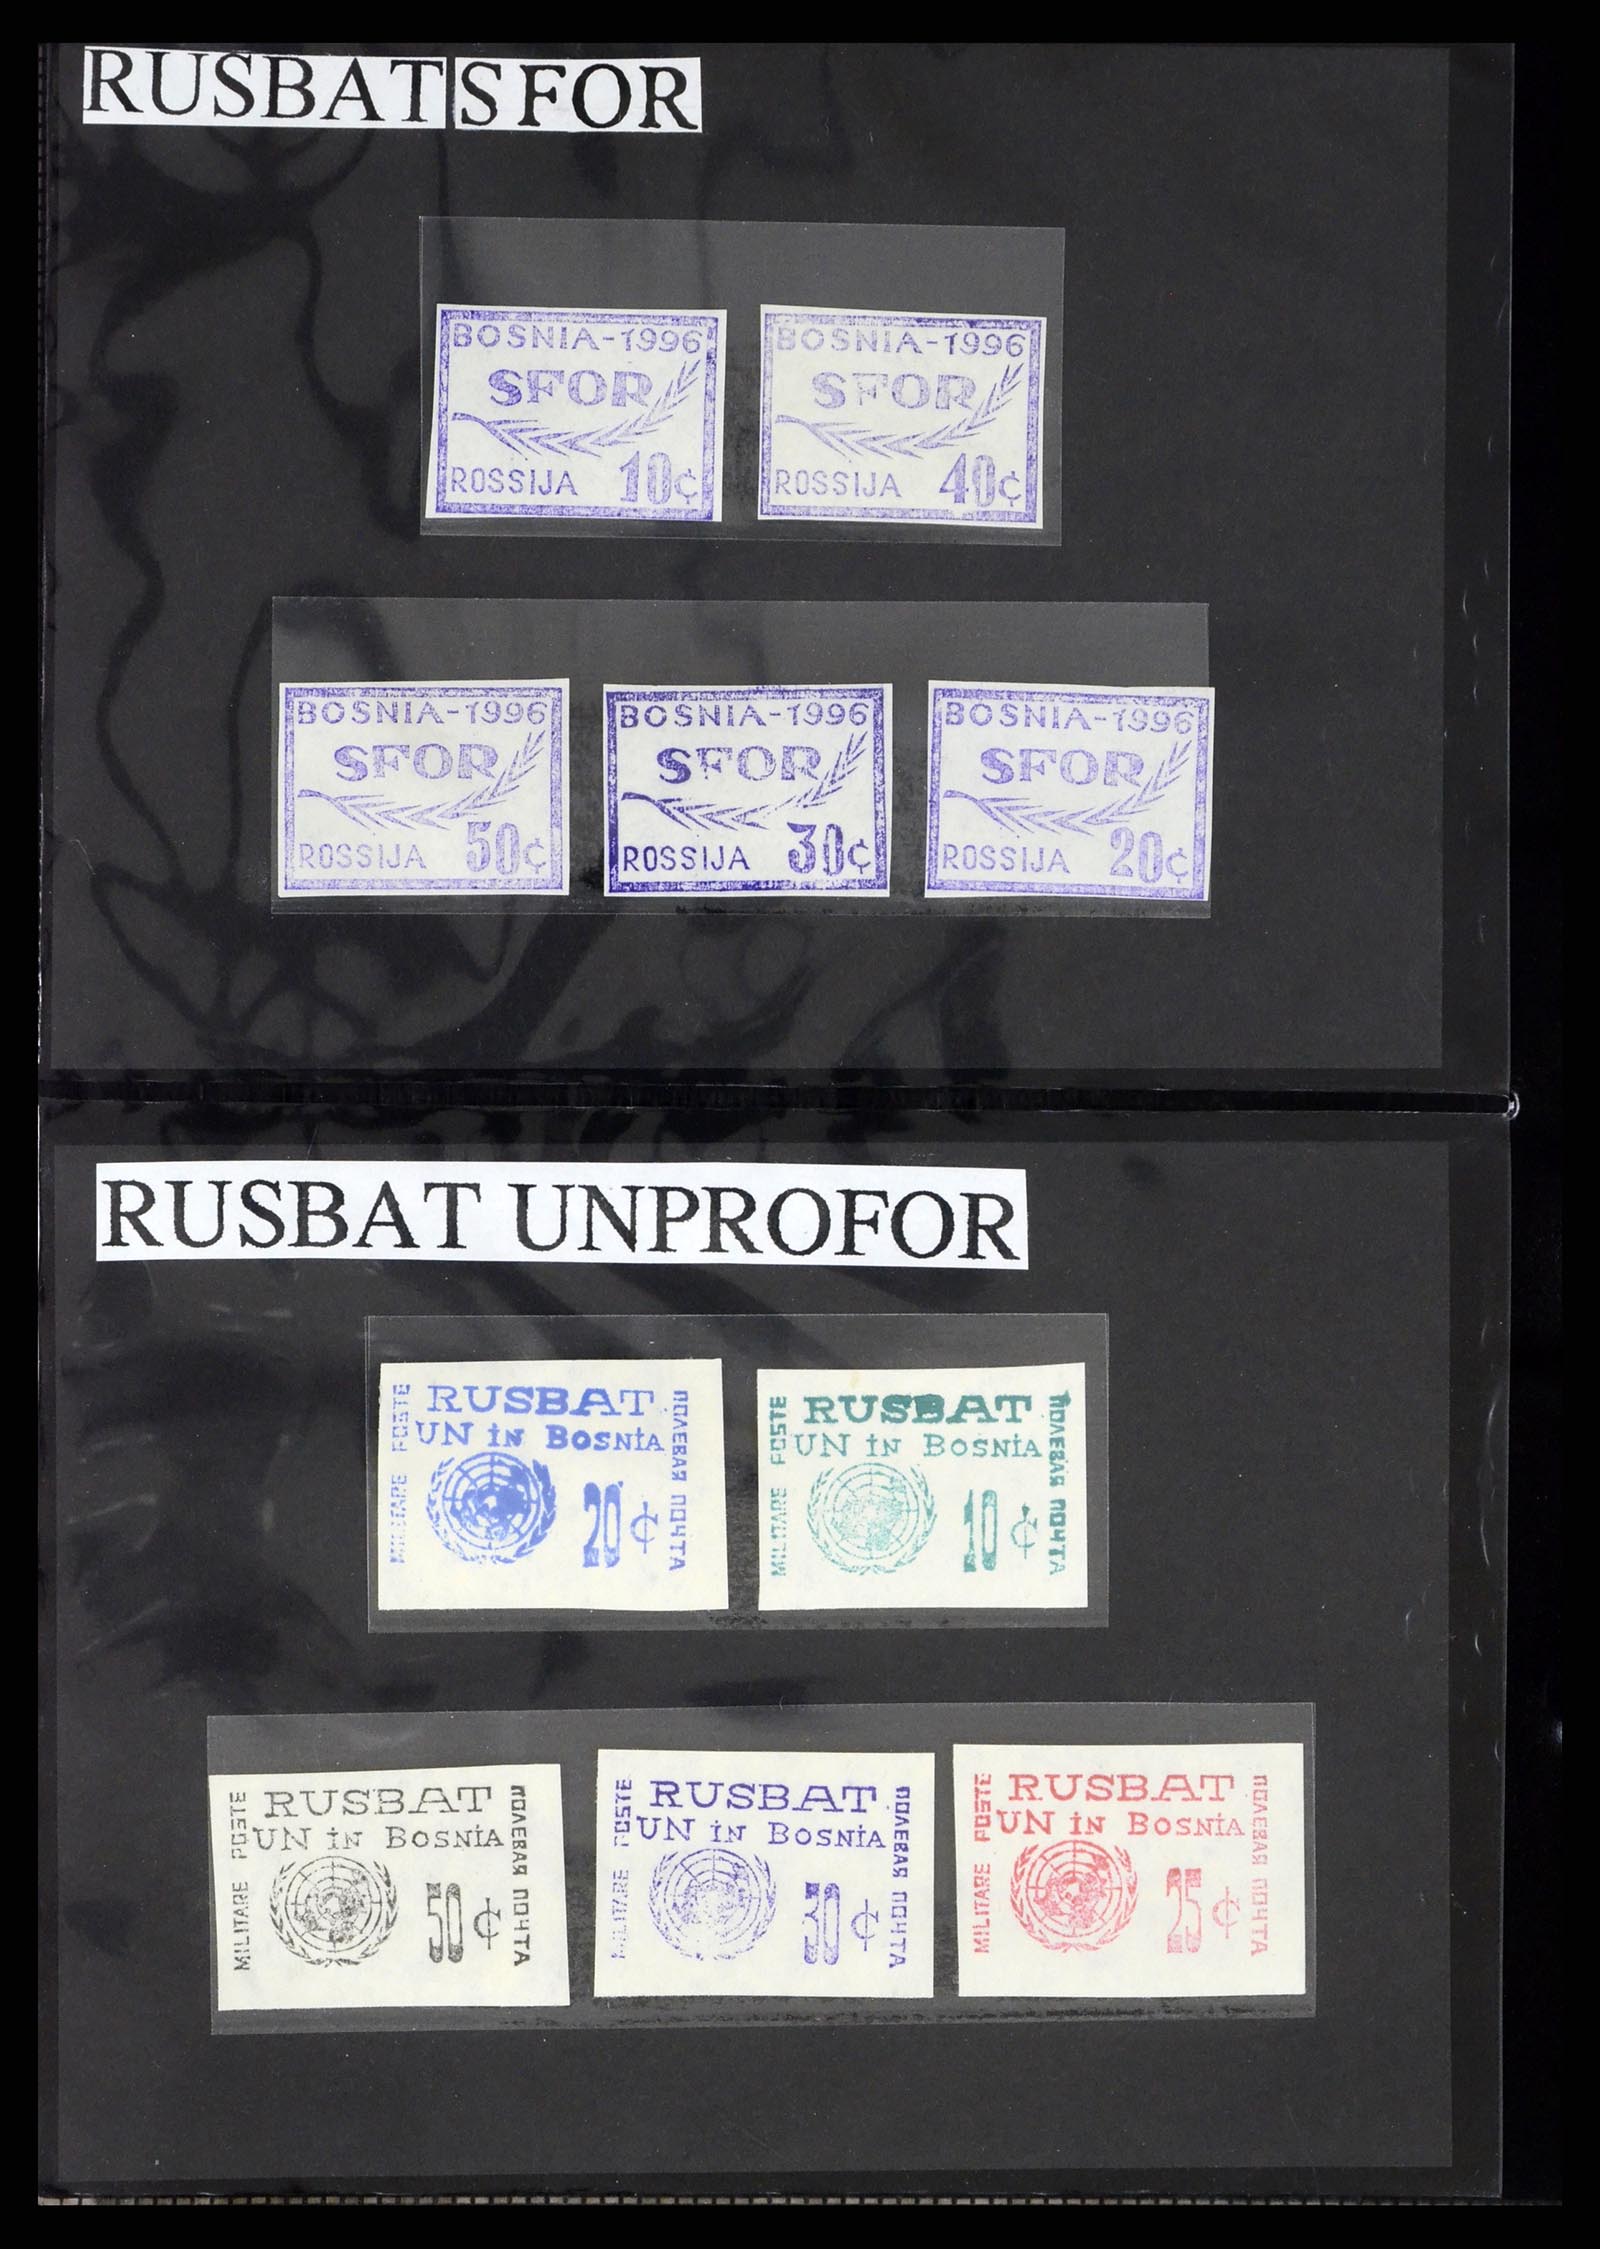 RUSBAT SFOR
BOSNIA-1996
SFOR
ROSSIJA 10¢
BOSNIA-1996
SFOR
ROSSIJA 40¢
BOSNIA-1996
SFOR
ROSSIJA 50¢
BOSNIA-1996
SFOR
ROSSIJA 30¢
BOSNIA-1996
SFOR
ROSSIJA 20¢
RUSBAT UNPROFOR
MILITARE POSTE
RUSBAT
UN iN BOSNiA
20 ¢
ПОЛЕВАЯ ПОЧТА
MILITARE POSTE
RUSBAT
UN iN BOSNiA
10 ¢
ПОЛЕВАЯ ПОЧТА
MILITARE POSTE
RUSBAT
UN iN BOSNiA
50 ¢
ПОЛЕВАЯ ПОЧТА
MILITARE POSTE
RUSBAT
UN iN BOSNiA
30 ¢
ПОЛЕВАЯ ПОЧТА
MILITARE POSTE
RUSBAT
UN iN BOSNiA
25 ¢
ПОЛЕВАЯ ПОЧТА